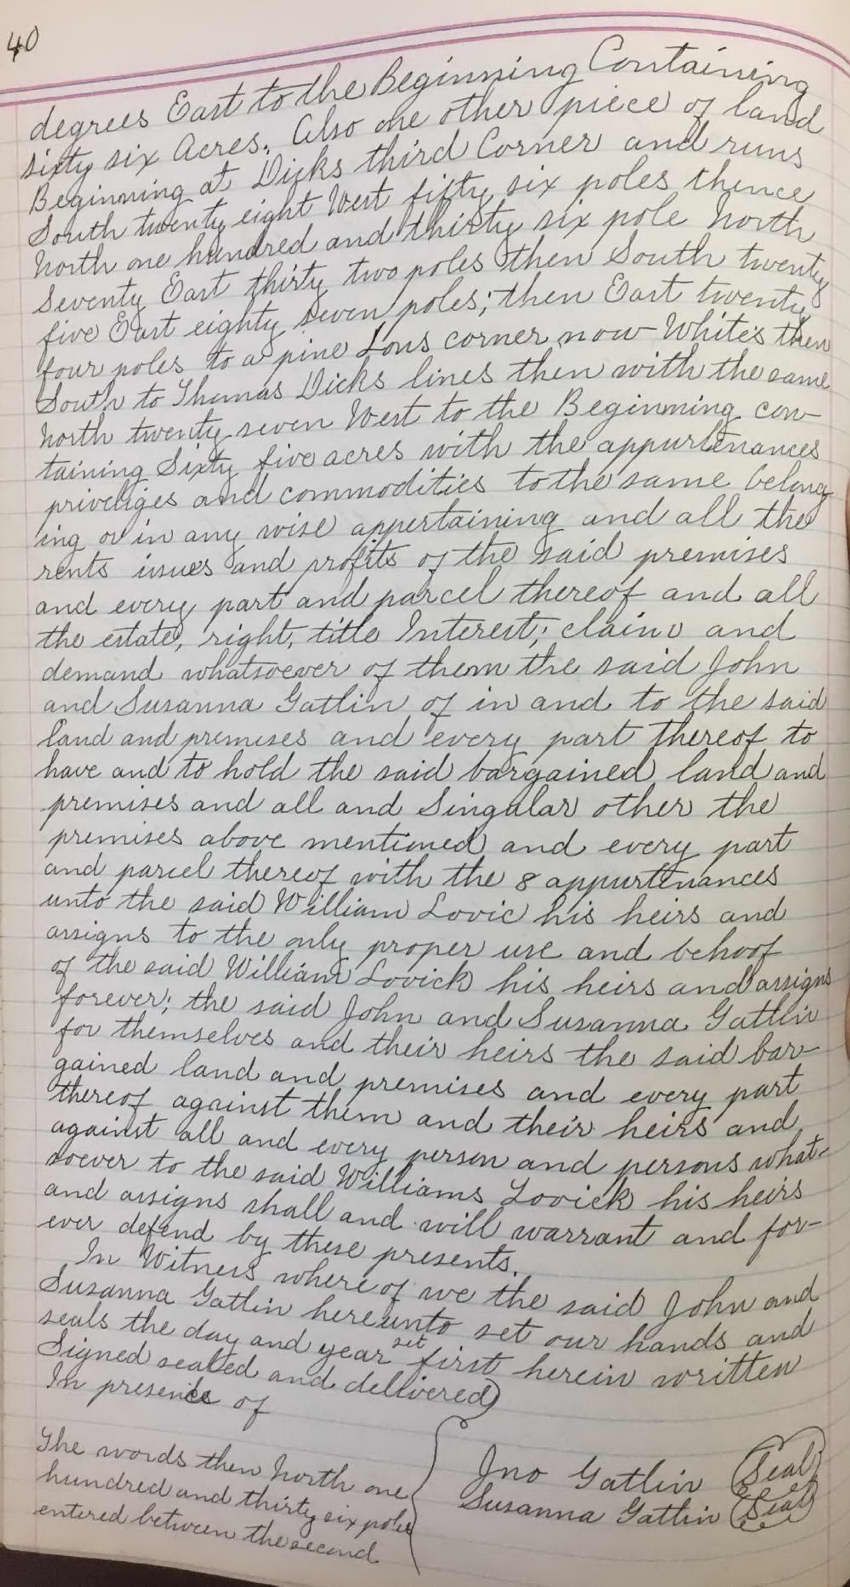 40
degrees East to the Beginning Containing
sixty six Acres. Also one other piece of land
Beginning at Dicks third Corner and runs
South twenty eight West fifty six poles thence
North one hundred and thirty six pole North
Seventy East thirty two poles then South twenty
five East eighty seven poles; then East twenty
four poles to a pine Lons corner now Whites then
South to Thomas Dicks lines then with the same
North twenty seven West to the Beginning con-
taining Sixty five acres with the appurtenances
priveliges and commodities to the same belong
ing or in any wise appertaining and all the
rents issues and profits of the said premises
and every part and parcel thereof and all
the estate, right, title Interest; claim and
demand whatsoever of them the said John
and Susanna Gatlin of in and to the said
land and premises and every part thereof to
have and to hold the said bargained land and
premises and all and Singular other the
premises above mentioned and every part
and parcel thereof with the 8 appurtenances
unto the said William Lovic his heirs and
assigns to the only proper use and behoof
of the said William Lovick his heirs and assigns
forever; the said John and Susanna Gatlin
for themselves and their heirs the said bar-
gained land and premises and every part
thereof against them and their heirs and
against all and every person and persons what-
soever to the said Williams Lovick his heirs
and assigns shall and will warrant and for-
ever defend by these presents.
In Witness where of we the said John and
Susanna Gatlin hereunto set our hands and
seals the day and year set first herein written
Signed sealed and delivered
In presence of
Jno Gatlin (Seal)
Susanna Gatlin (Seal)
The words then North one
hundred and thirty six poles
entered between the second